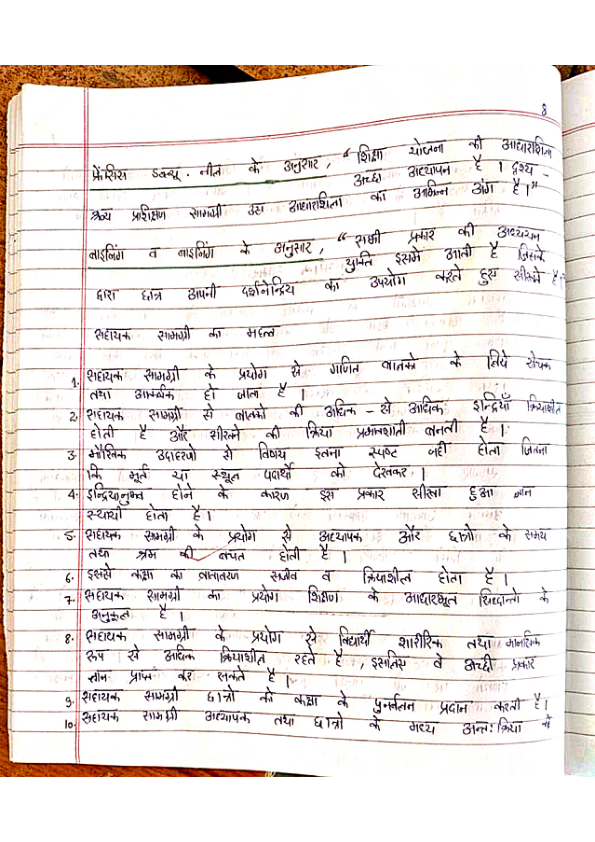 8
फ्रेंसिस डब्ल्यू. नील के अनुसार, "शिक्षा योजना की आधारशिला
अच्छा अध्यापन है । दृश्य -
श्रव्य प्रशिक्षण सामग्री उस आधारशिला का अभिन्न अंग है।"
बाइनिंग व बाइनिंग के अनुसार, "सभी प्रकार की अध्ययन
युक्ति इसमें आती है जिसके
द्वारा छात्र अपनी दर्शनेन्द्रिय का उपयोग करते हुए सीखते है।"
सहायक सामग्री का महत्व
1. सहायक सामग्री के प्रयोग से गणित बालको के लिये रोचक
तथा आकर्षक हो जाता है ।
2. सहायक सामग्री से बालको की अधिक - से अधिक इन्द्रियाँ क्रियाशील
होती है और सीखने की क्रिया प्रभावशाली बनती है ।
3. मौखिक उदाहरणो से विषय इतना स्पष्ट नही होता जितना
कि मूर्त या स्थूल पदार्थो को देखकर ।
4. इन्द्रियानुभव होने के कारण इस प्रकार सीखा हुआ ज्ञान
स्थायी होता है ।
5. सहायक सामग्री के प्रयोग से अध्यापक और छात्रो के समय
तथा श्रम की बचत होती है ।
6. इससे कक्षा का वातावरण सजीव व क्रियाशील होता है ।
7. सहायक सामग्री का प्रयोग शिक्षण के आधारभूत सिद्धान्तो के
अनुकूल है ।
8. सहायक सामग्री के प्रयोग से विद्यार्थी शारीरिक तथा मानसिक
रूप से अधिक क्रियाशील रहते है , इसलिस वे अच्छी प्रकार
ज्ञान प्राप्त कर सकते है ।
9. सहायक सामग्री छात्रो को कक्षा के पुनर्बलन प्रदान करती है।
10. सहायक सामग्री अध्यापक तथा छात्रो के मध्य अन्तःक्रिया को